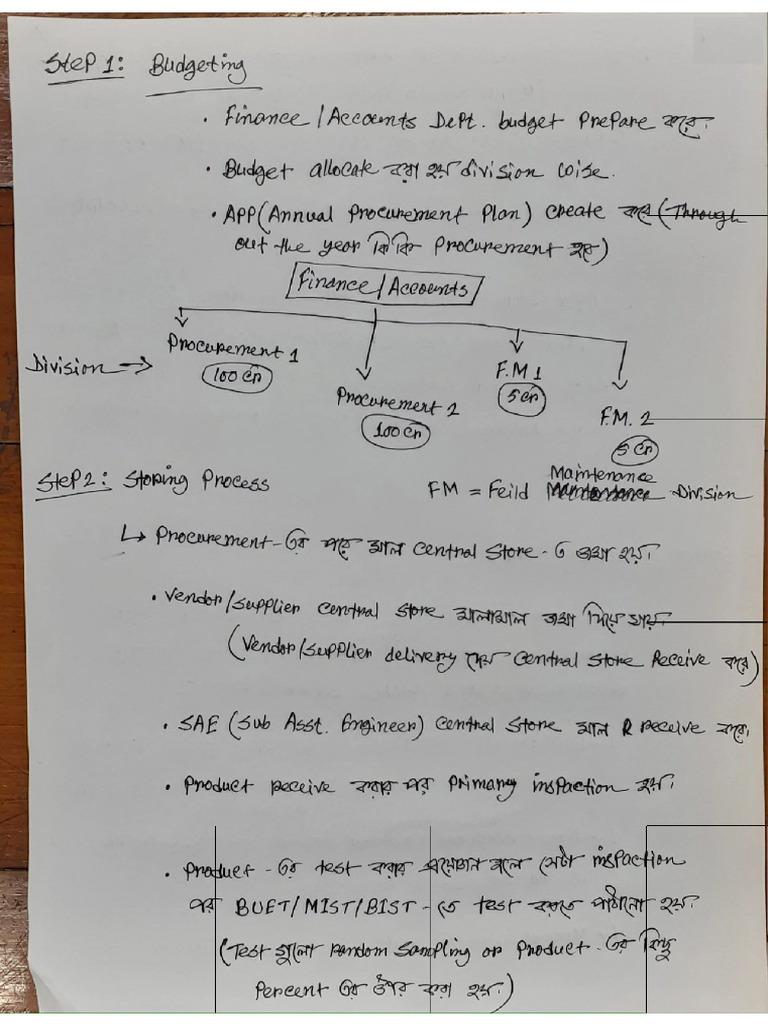 Step 1: Budgeting
• Finance/Accounts Dept. budget prepare করে।
• Budget allocate করা হয় division wise.
• APP (Annual Procurement Plan) create করে (Through
out the year কি কি procurement হবে)
Finance/Accounts
Division →
Procurement 1
100 Cr
Procurement 2
100 Cr
F.M 1
5 Cr
F.M. 2
5 Cr
Step 2: Storing Process
FM = Feild Maintenance Division
↳ Procurement-এর পরে মাল central store-এ জমা হয়।
• Vendor/supplier central store মালামাল জমা দিয়ে যায়।
(Vendor/supplier delivery দেয় central store receive করে)
• SAE (Sub Asst. Engineer) central store মাল R receive করে।
• Product receive করার পর primary inspaction হয়।
• Product-এর test করার প্রয়োজন হলে সেটা inspaction
পর BUET/MIST/BIST-তে test করতে পাঠানো হয়।
(Test গুলো random sampling or product-এর কিছু
percent এর উপর করা হয়।)